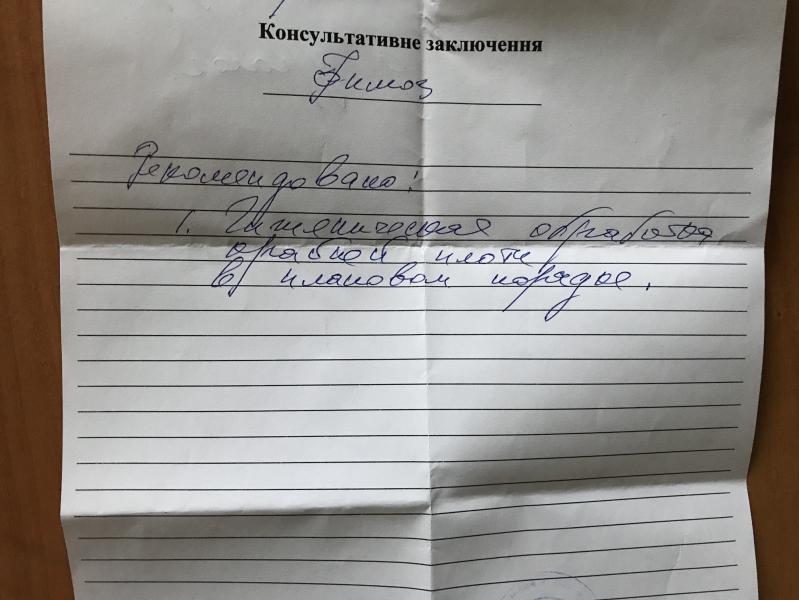 Консультативне заключення
Фимоз
Рекомендовано:
1. Гигиеническая обработка
крайней плоти
в плановом порядке.